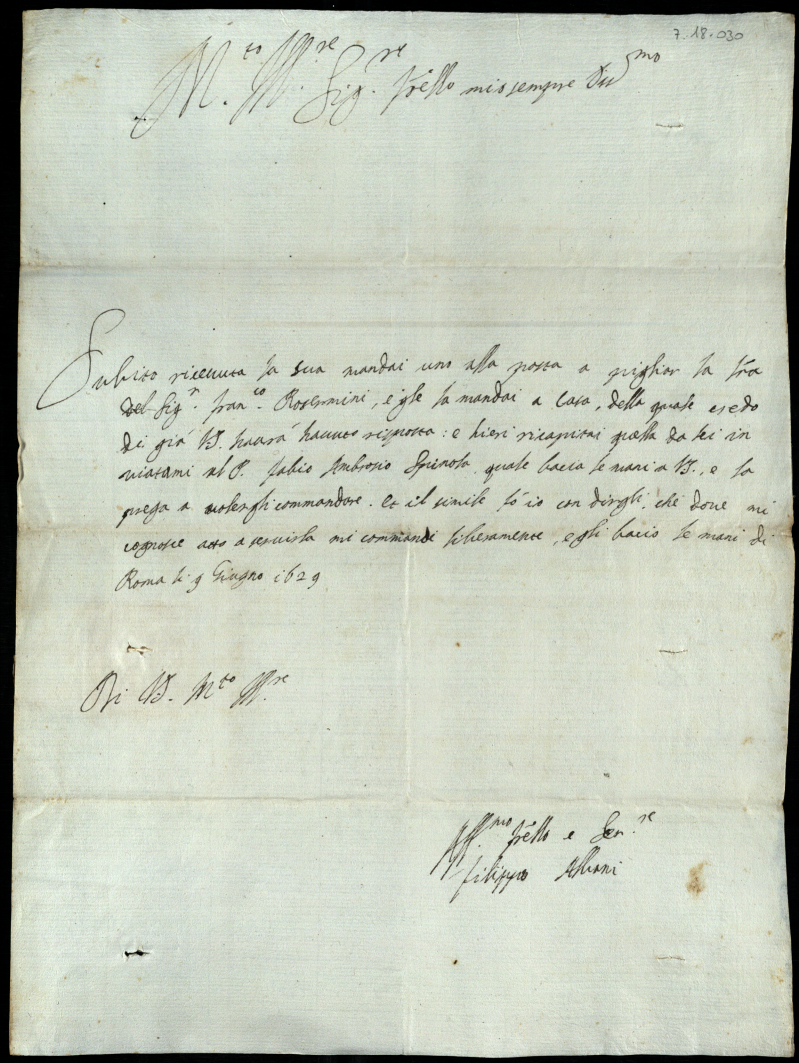 7.18.030
M.to Ill.re Sig.re fr̃ello mio sempre Oss.mo
Subito riceuuta la sua mandai uno alla posta a pigliar la lr̃a
del Sig.r fran.co Rosermini, e gle la mandai a casa, della quale credo
di già VS. haurà hauuto risposta: e hieri ricapitai q̃ella da lei in
uiatami al P. fabio Ambrosio Spinola quale bacia le mani a VS., e la
prega a uolergli commandare. et il simile fò io con dirgli, che doue mi
cognosce atto a seruirla mi commandi liberamente, e gli bacio le mani di
Roma li 9 Giugno 1629
Di VS. M.to Ill.re
Aff.mo fr̃ello e Ser.re
filippo Albani